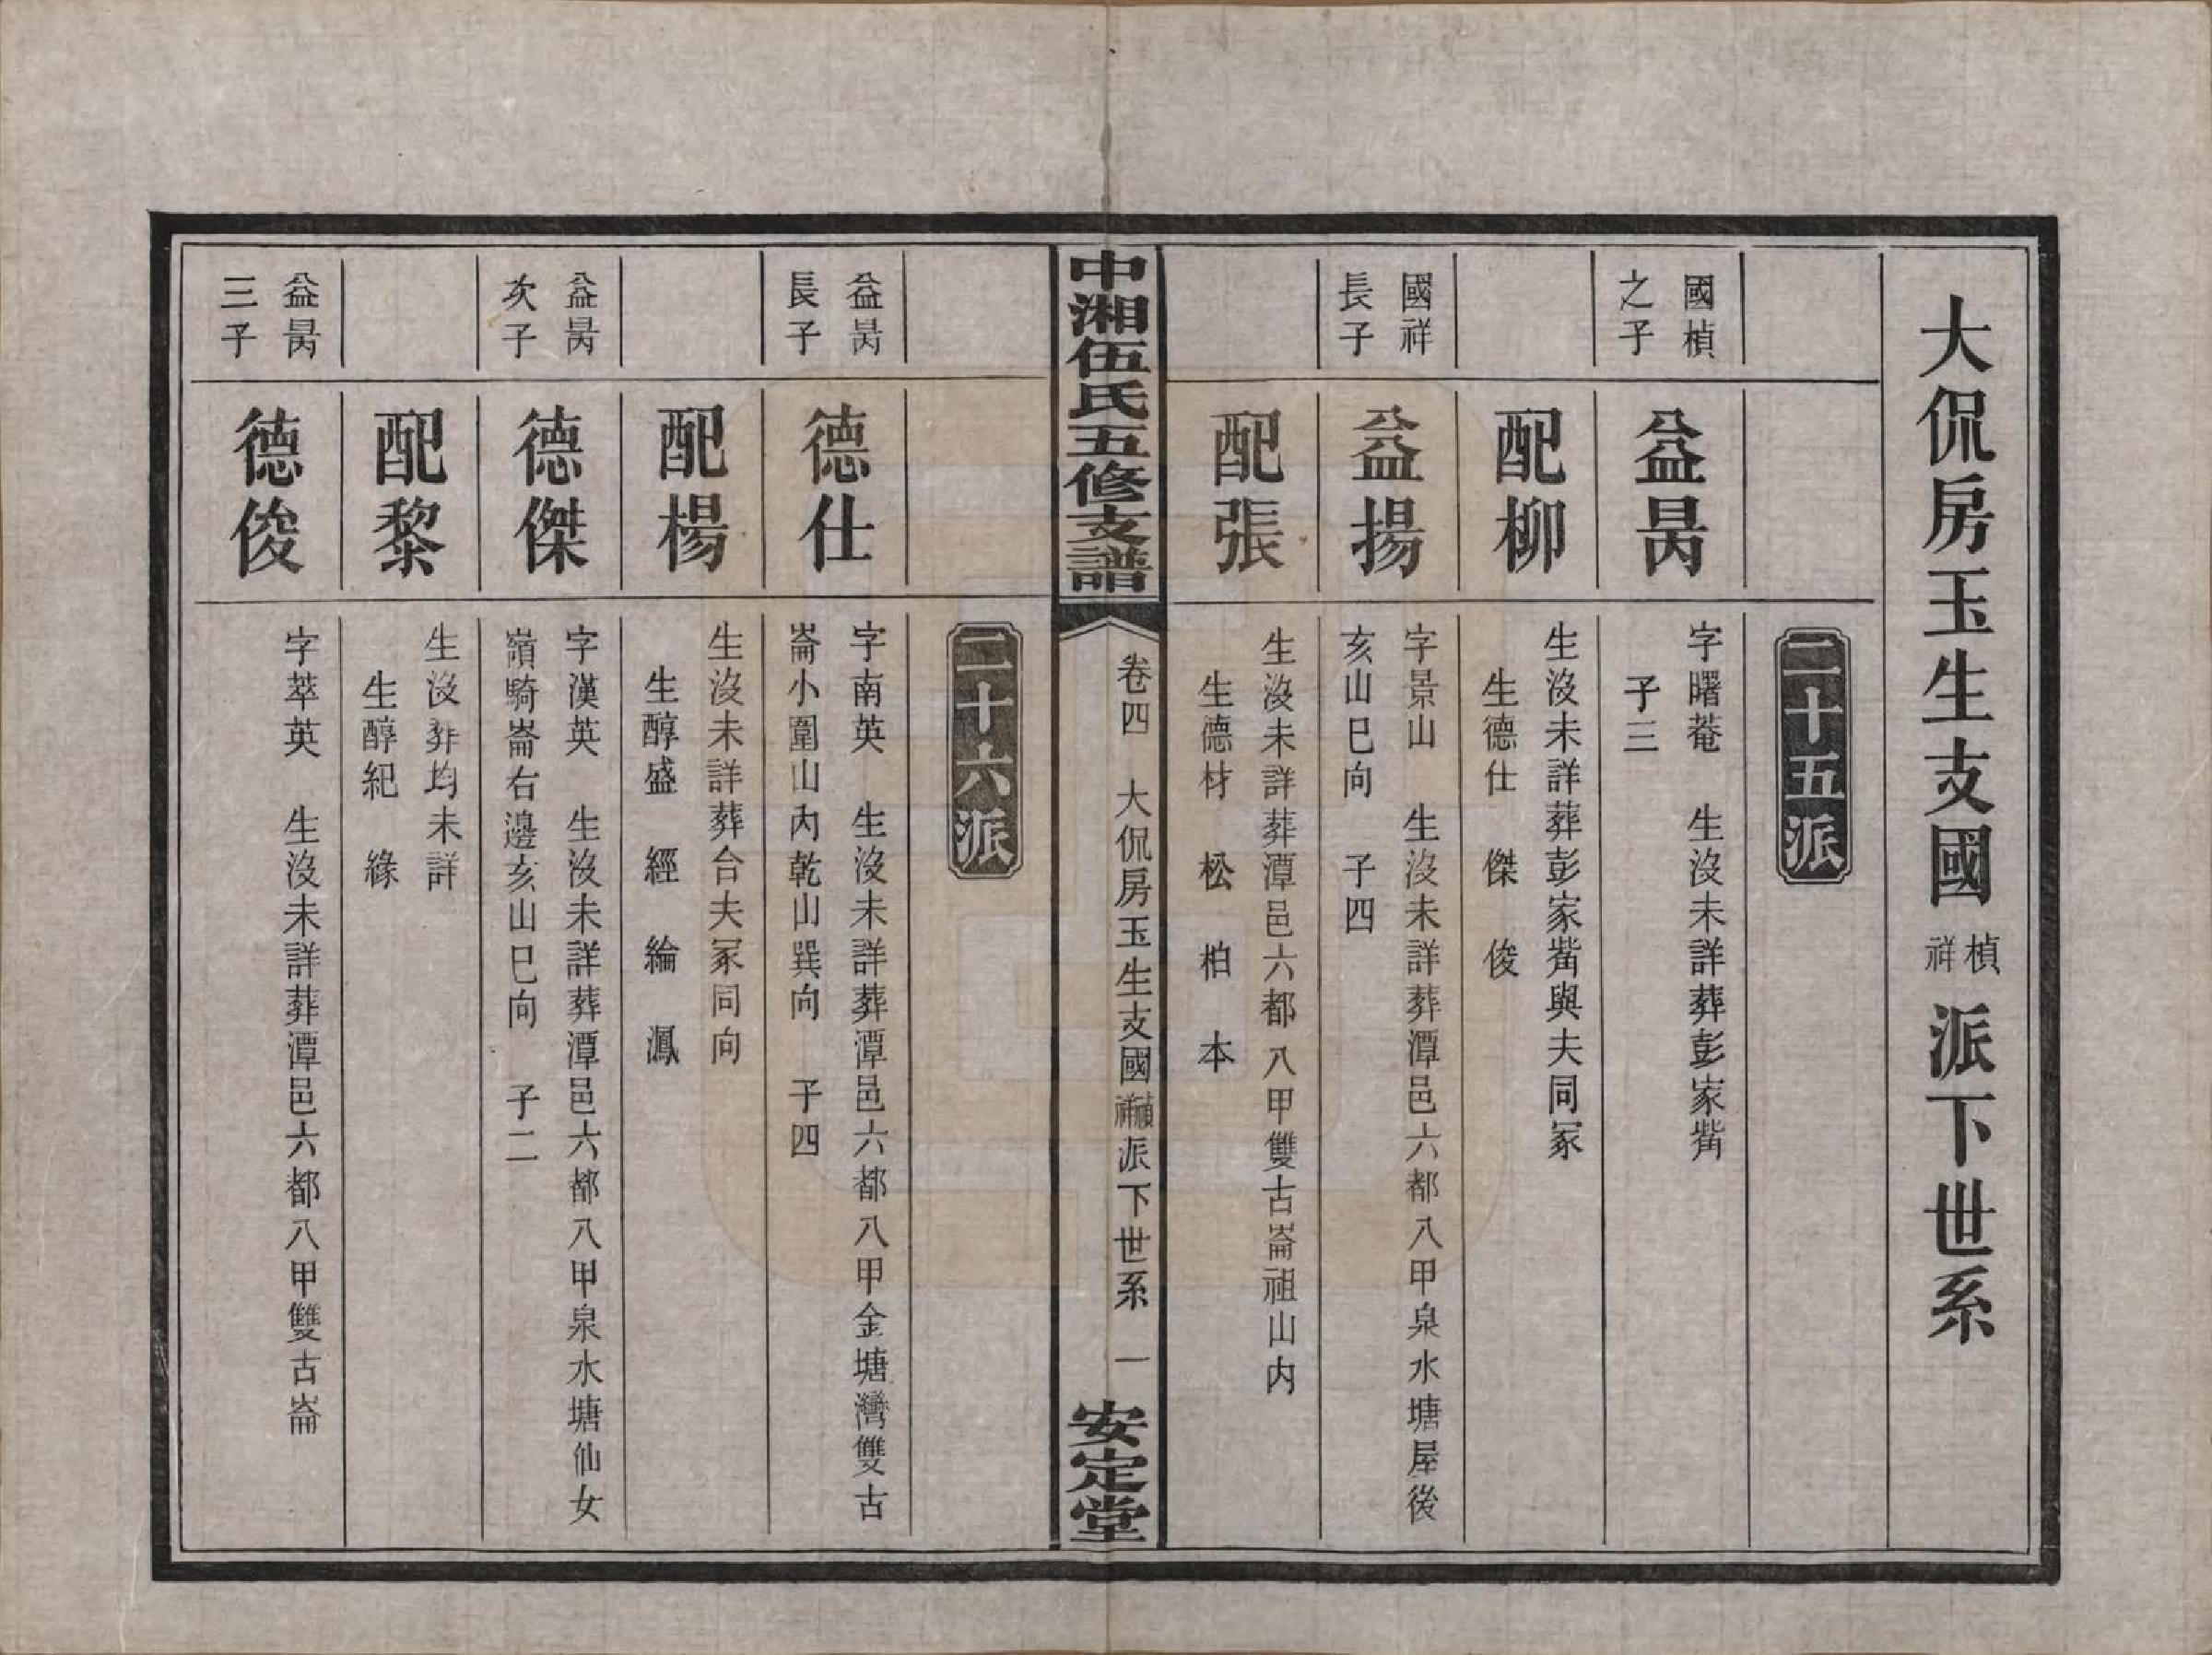 大侃房玉生支國楨祥派下世系
二十五派
國楨
之子
益昺
字曙菴　生沒未詳葬彭家觜
子三
配柳
生沒未詳葬彭家觜與夫同冢
生德仕　傑　俊
國祥
長子
益揚
字景山　生沒未詳葬潭邑六都八甲泉水塘屋後
亥山巳向　子四
配張
生沒未詳葬潭邑六都八甲雙古崙祖山内
生德材　松　柏　本
中湘伍氏五修支譜
卷四　大侃房玉生支國楨祥派下世系　一
安定堂
二十六派
益昺
長子
德仕
字南英　生沒未詳葬潭邑六都八甲金塘灣雙古
崙小圍山内乾山巽向　子四
配楊
生沒未詳葬合夫冢同向
生醇盛　經　綸　鳳
益昺
次子
德傑
字漢英　生沒未詳葬潭邑六都八甲泉水塘仙女
嶺騎崙右邊亥山巳向　子二
配黎
生沒葬均未詳
生醇紀　緣
益昺
三子
德俊
字萃英　生沒未詳葬潭邑六都八甲雙古崙